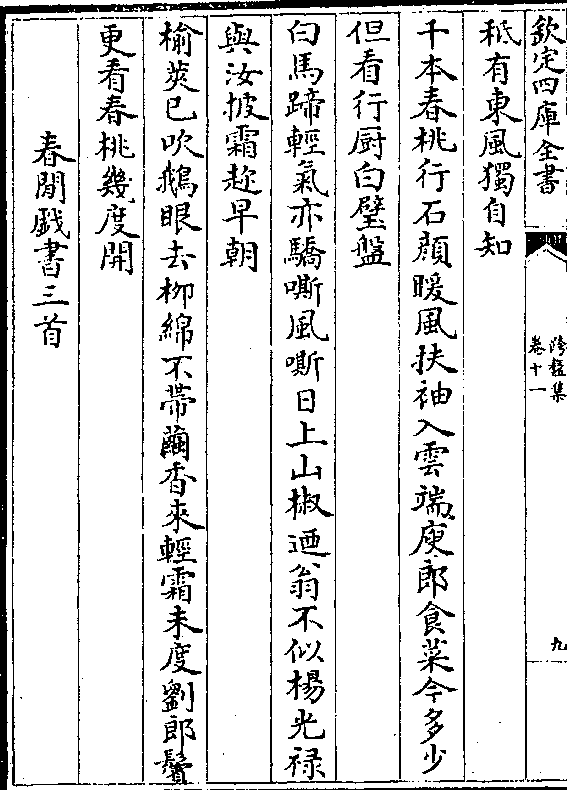 欽定四庫全書
跨鼇集
卷十一
九
秪有東風獨自知
千本春桃行石顔暖風扶袖入雲端庾郎食菜今多少
但看行厨白璧盤
白馬蹄輕氣亦驕嘶風嘶日上山椒迺翁不似楊光禄
與汝披霜趂早朝
榆莢已吹鵝眼去栁綿不帶繭香來輕霜未度劉郎鬢
更看春桃幾度開
春閒戱書三首